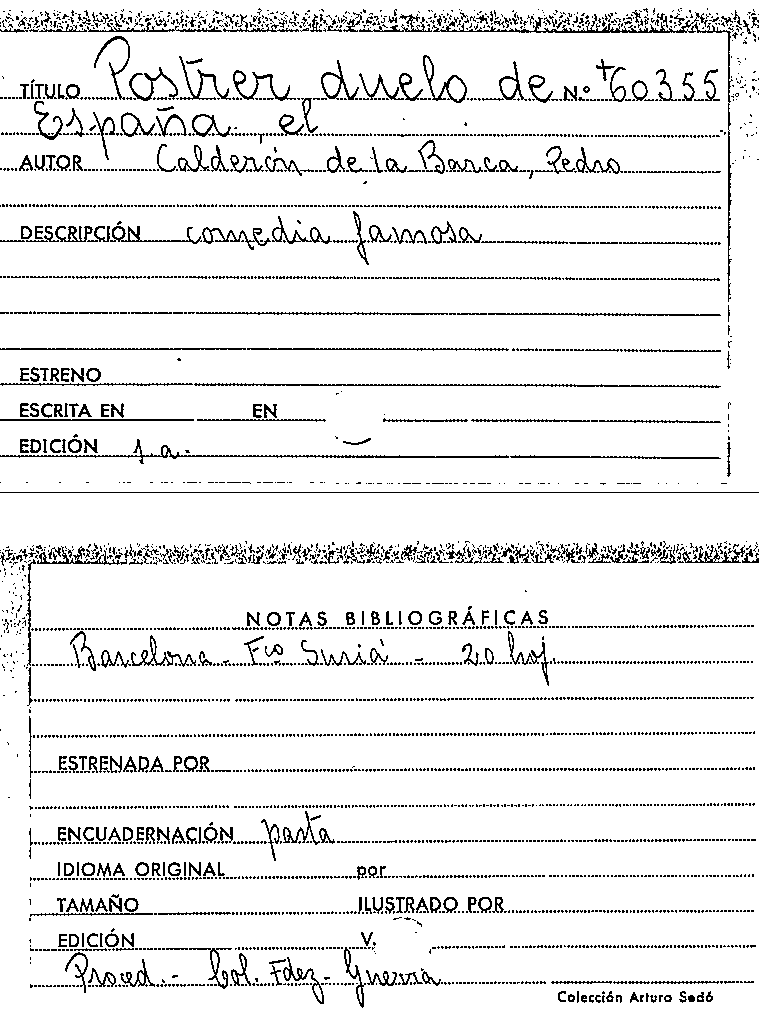 TÍTULO Postrer duelo de N.º +60355
España, el
AUTOR Calderón de la Barca, Pedro
DESCRIPCIÓN comedia famosa
ESTRENO
ESCRITA EN EN
EDICIÓN s.a.
NOTAS BIBLIOGRÁFICAS
Barcelona - Fco Suriá - 20 hoj.
ESTRENADA POR
ENCUADERNACIÓN pasta
IDIOMA ORIGINAL por
TAMAÑO ILUSTRADO POR
EDICIÓN V.
Proced.- Col. Fdez-Guerra
Colección Arturo Sedó